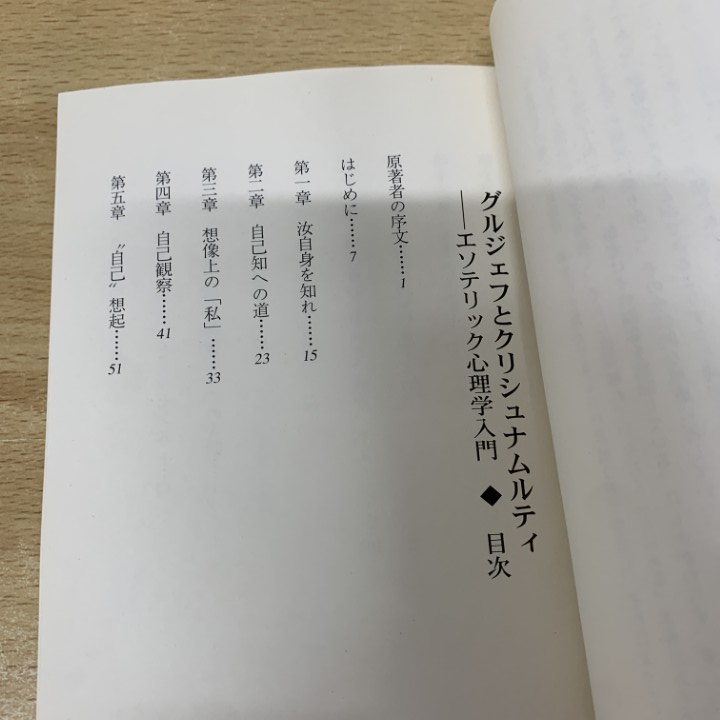 グルジェフとクリシュナムルティ
──エソテリック心理学入門 ◆ 目次
原著者の序文……1
はじめに……7
第一章 汝自身を知れ……15
第二章 自己知への道……23
第三章 想像上の「私」……33
第四章 自己観察……41
第五章 〝自己〟想起……51